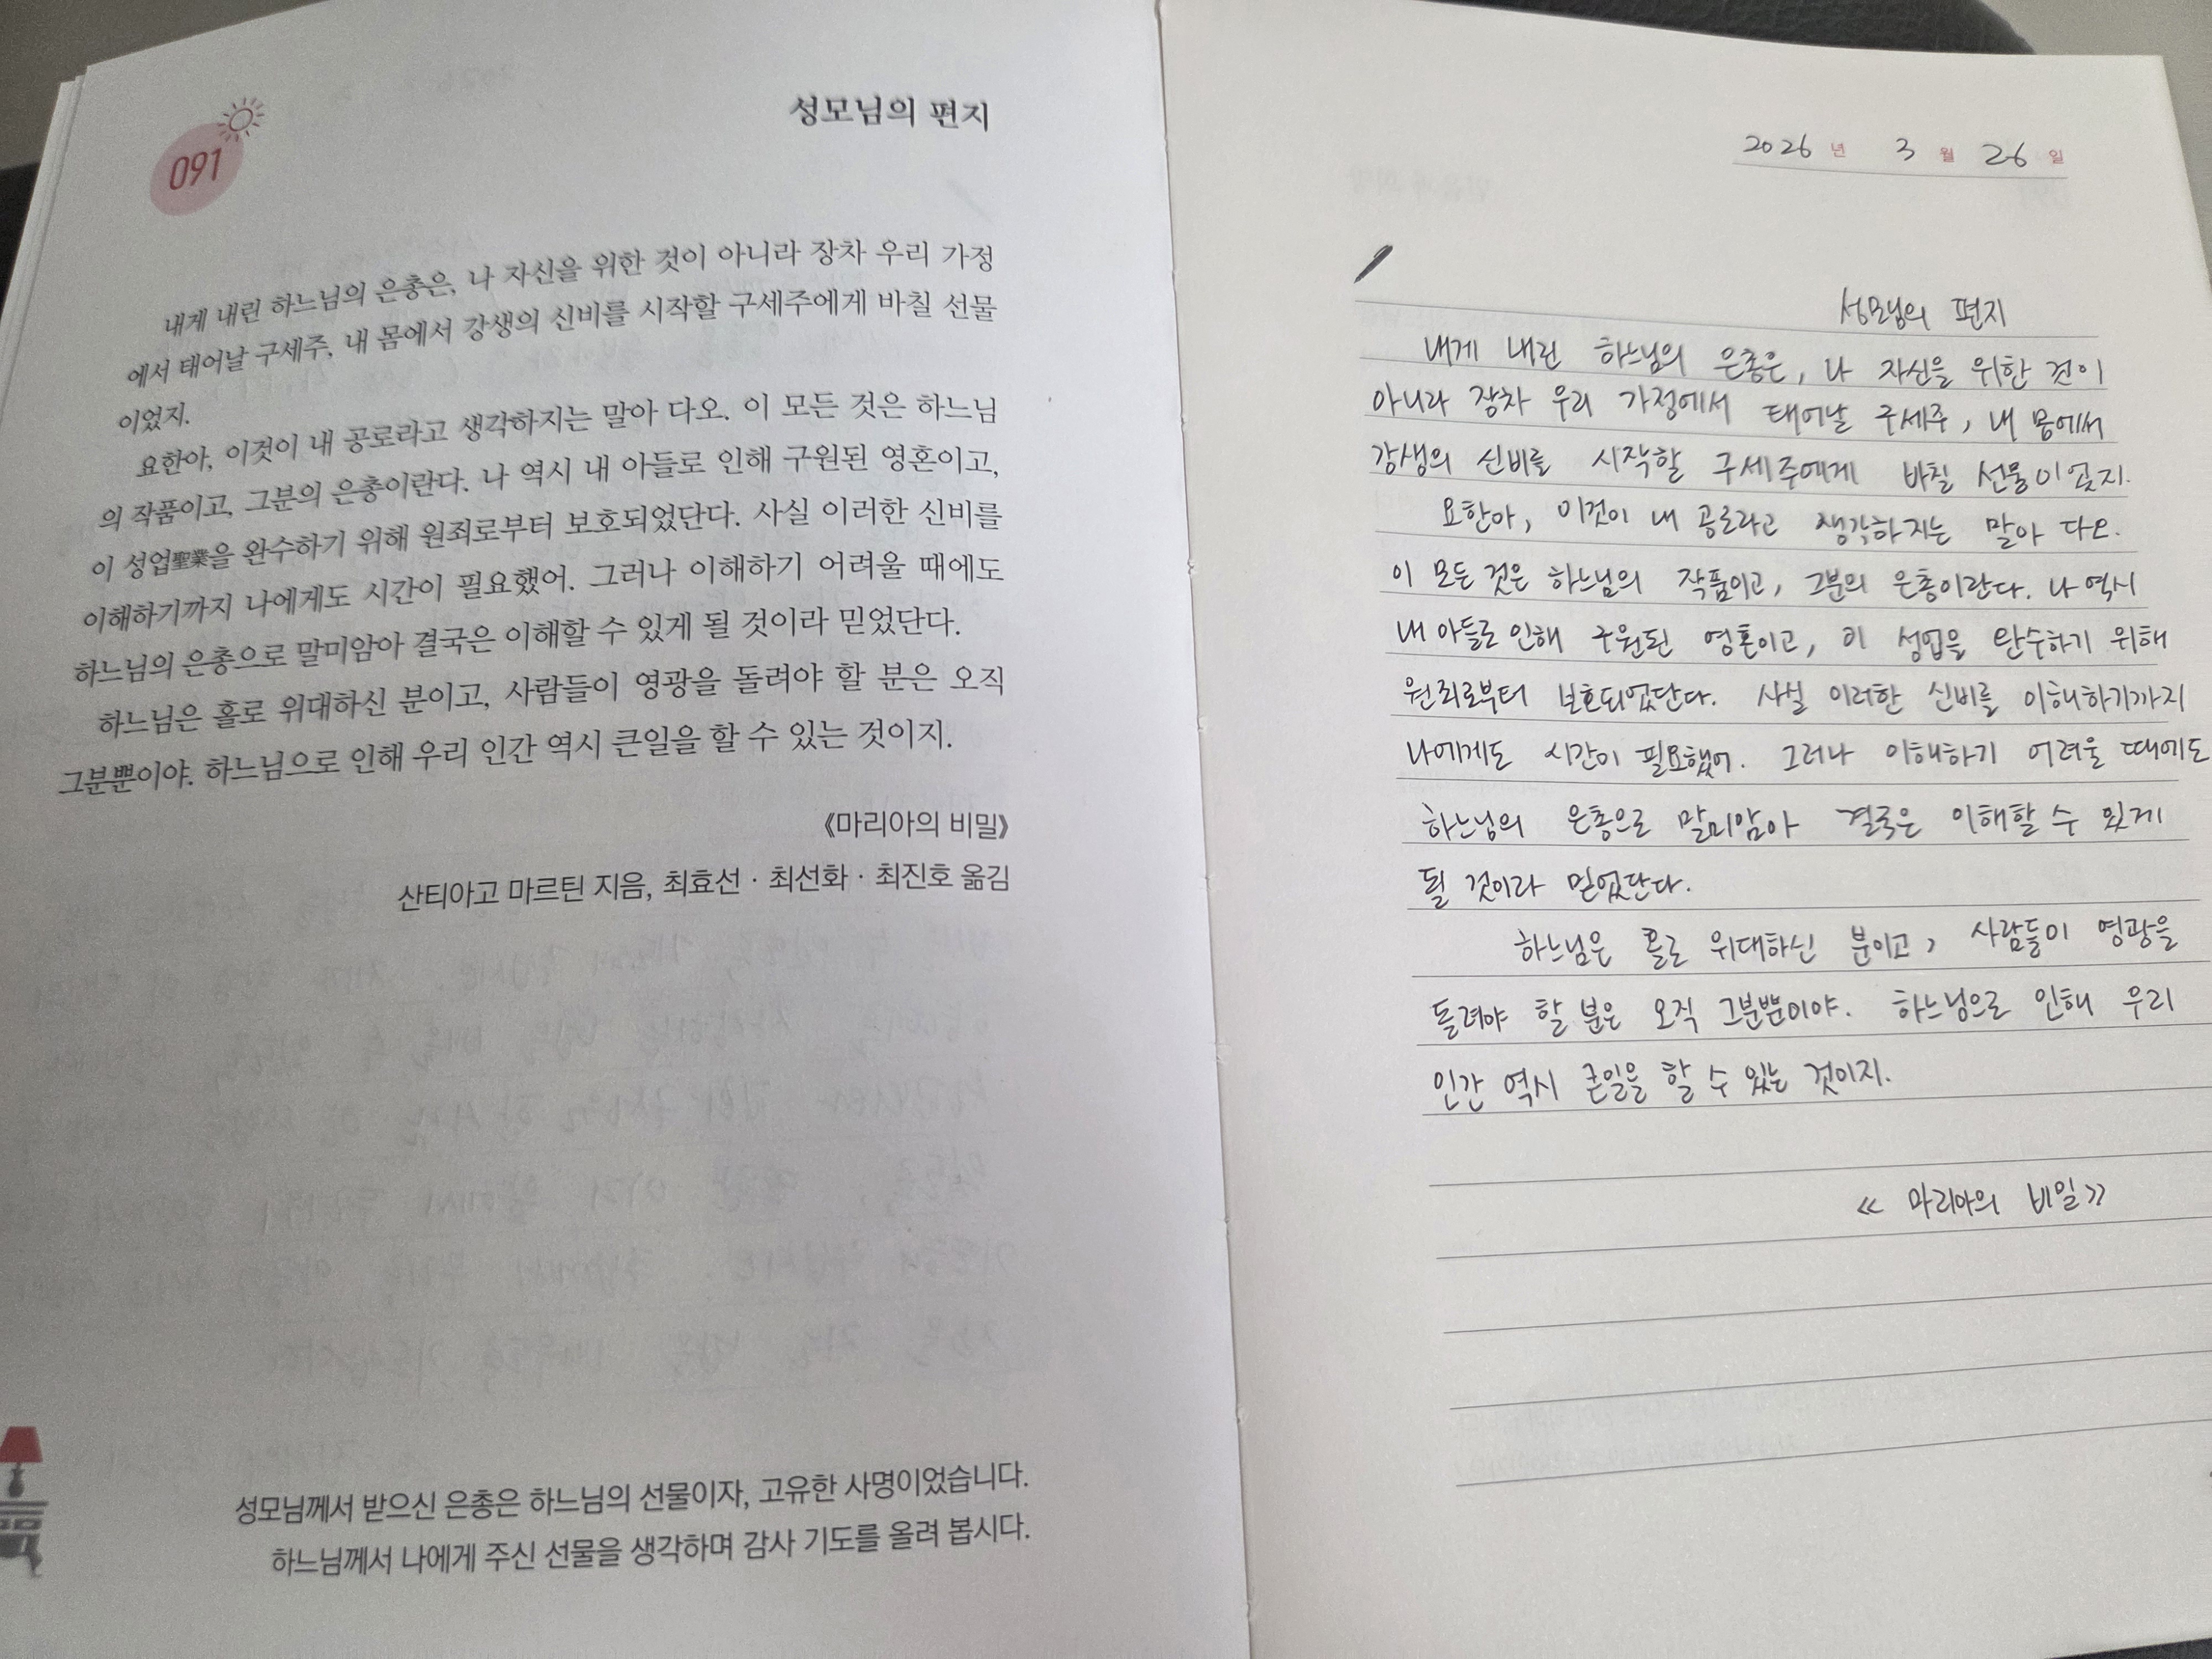 091
성모님의 편지
내게 내린 하느님의 은총은, 나 자신을 위한 것이 아니라 장차 우리 가정
에서 태어날 구세주, 내 몸에서 강생의 신비를 시작할 구세주에게 바칠 선물
이었지.
요한아, 이것이 내 공로라고 생각하지는 말아 다오. 이 모든 것은 하느님
의 작품이고, 그분의 은총이란다. 나 역시 내 아들로 인해 구원된 영혼이고,
이 성업聖業을 완수하기 위해 원죄로부터 보호되었단다. 사실 이러한 신비를
이해하기까지 나에게도 시간이 필요했어. 그러나 이해하기 어려울 때에도
하느님의 은총으로 말미암아 결국은 이해할 수 있게 될 것이라 믿었단다.
하느님은 홀로 위대하신 분이고, 사람들이 영광을 돌려야 할 분은 오직
그분뿐이야. 하느님으로 인해 우리 인간 역시 큰일을 할 수 있는 것이지.
《마리아의 비밀》
산티아고 마르틴 지음, 최효선 · 최선화 · 최진호 옮김
성모님께서 받으신 은총은 하느님의 선물이자, 고유한 사명이었습니다.
하느님께서 나에게 주신 선물을 생각하며 감사 기도를 올려 봅시다.
2026 년 3 월 26 일
성모님의 편지
내게 내린 하느님의 은총은, 나 자신을 위한 것이
아니라 장차 우리 가정에서 태어날 구세주, 내 몸에서
강생의 신비를 시작할 구세주에게 바칠 선물이었지.
요한아, 이것이 내 공로라고 생각하지는 말아 다오.
이 모든 것은 하느님의 작품이고, 그분의 은총이란다. 나 역시
내 아들로 인해 구원된 영혼이고, 이 성업을 완수하기 위해
원죄로부터 보호되었단다. 사실 이러한 신비를 이해하기까지
나에게도 시간이 필요했어. 그러나 이해하기 어려울 때에도
하느님의 은총으로 말미암아 결국은 이해할 수 있게
될 것이라 믿었단다.
하느님은 홀로 위대하신 분이고, 사람들이 영광을
돌려야 할 분은 오직 그분뿐이야. 하느님으로 인해 우리
인간 역시 큰일을 할 수 있는 것이지.
《 마리아의 비밀》